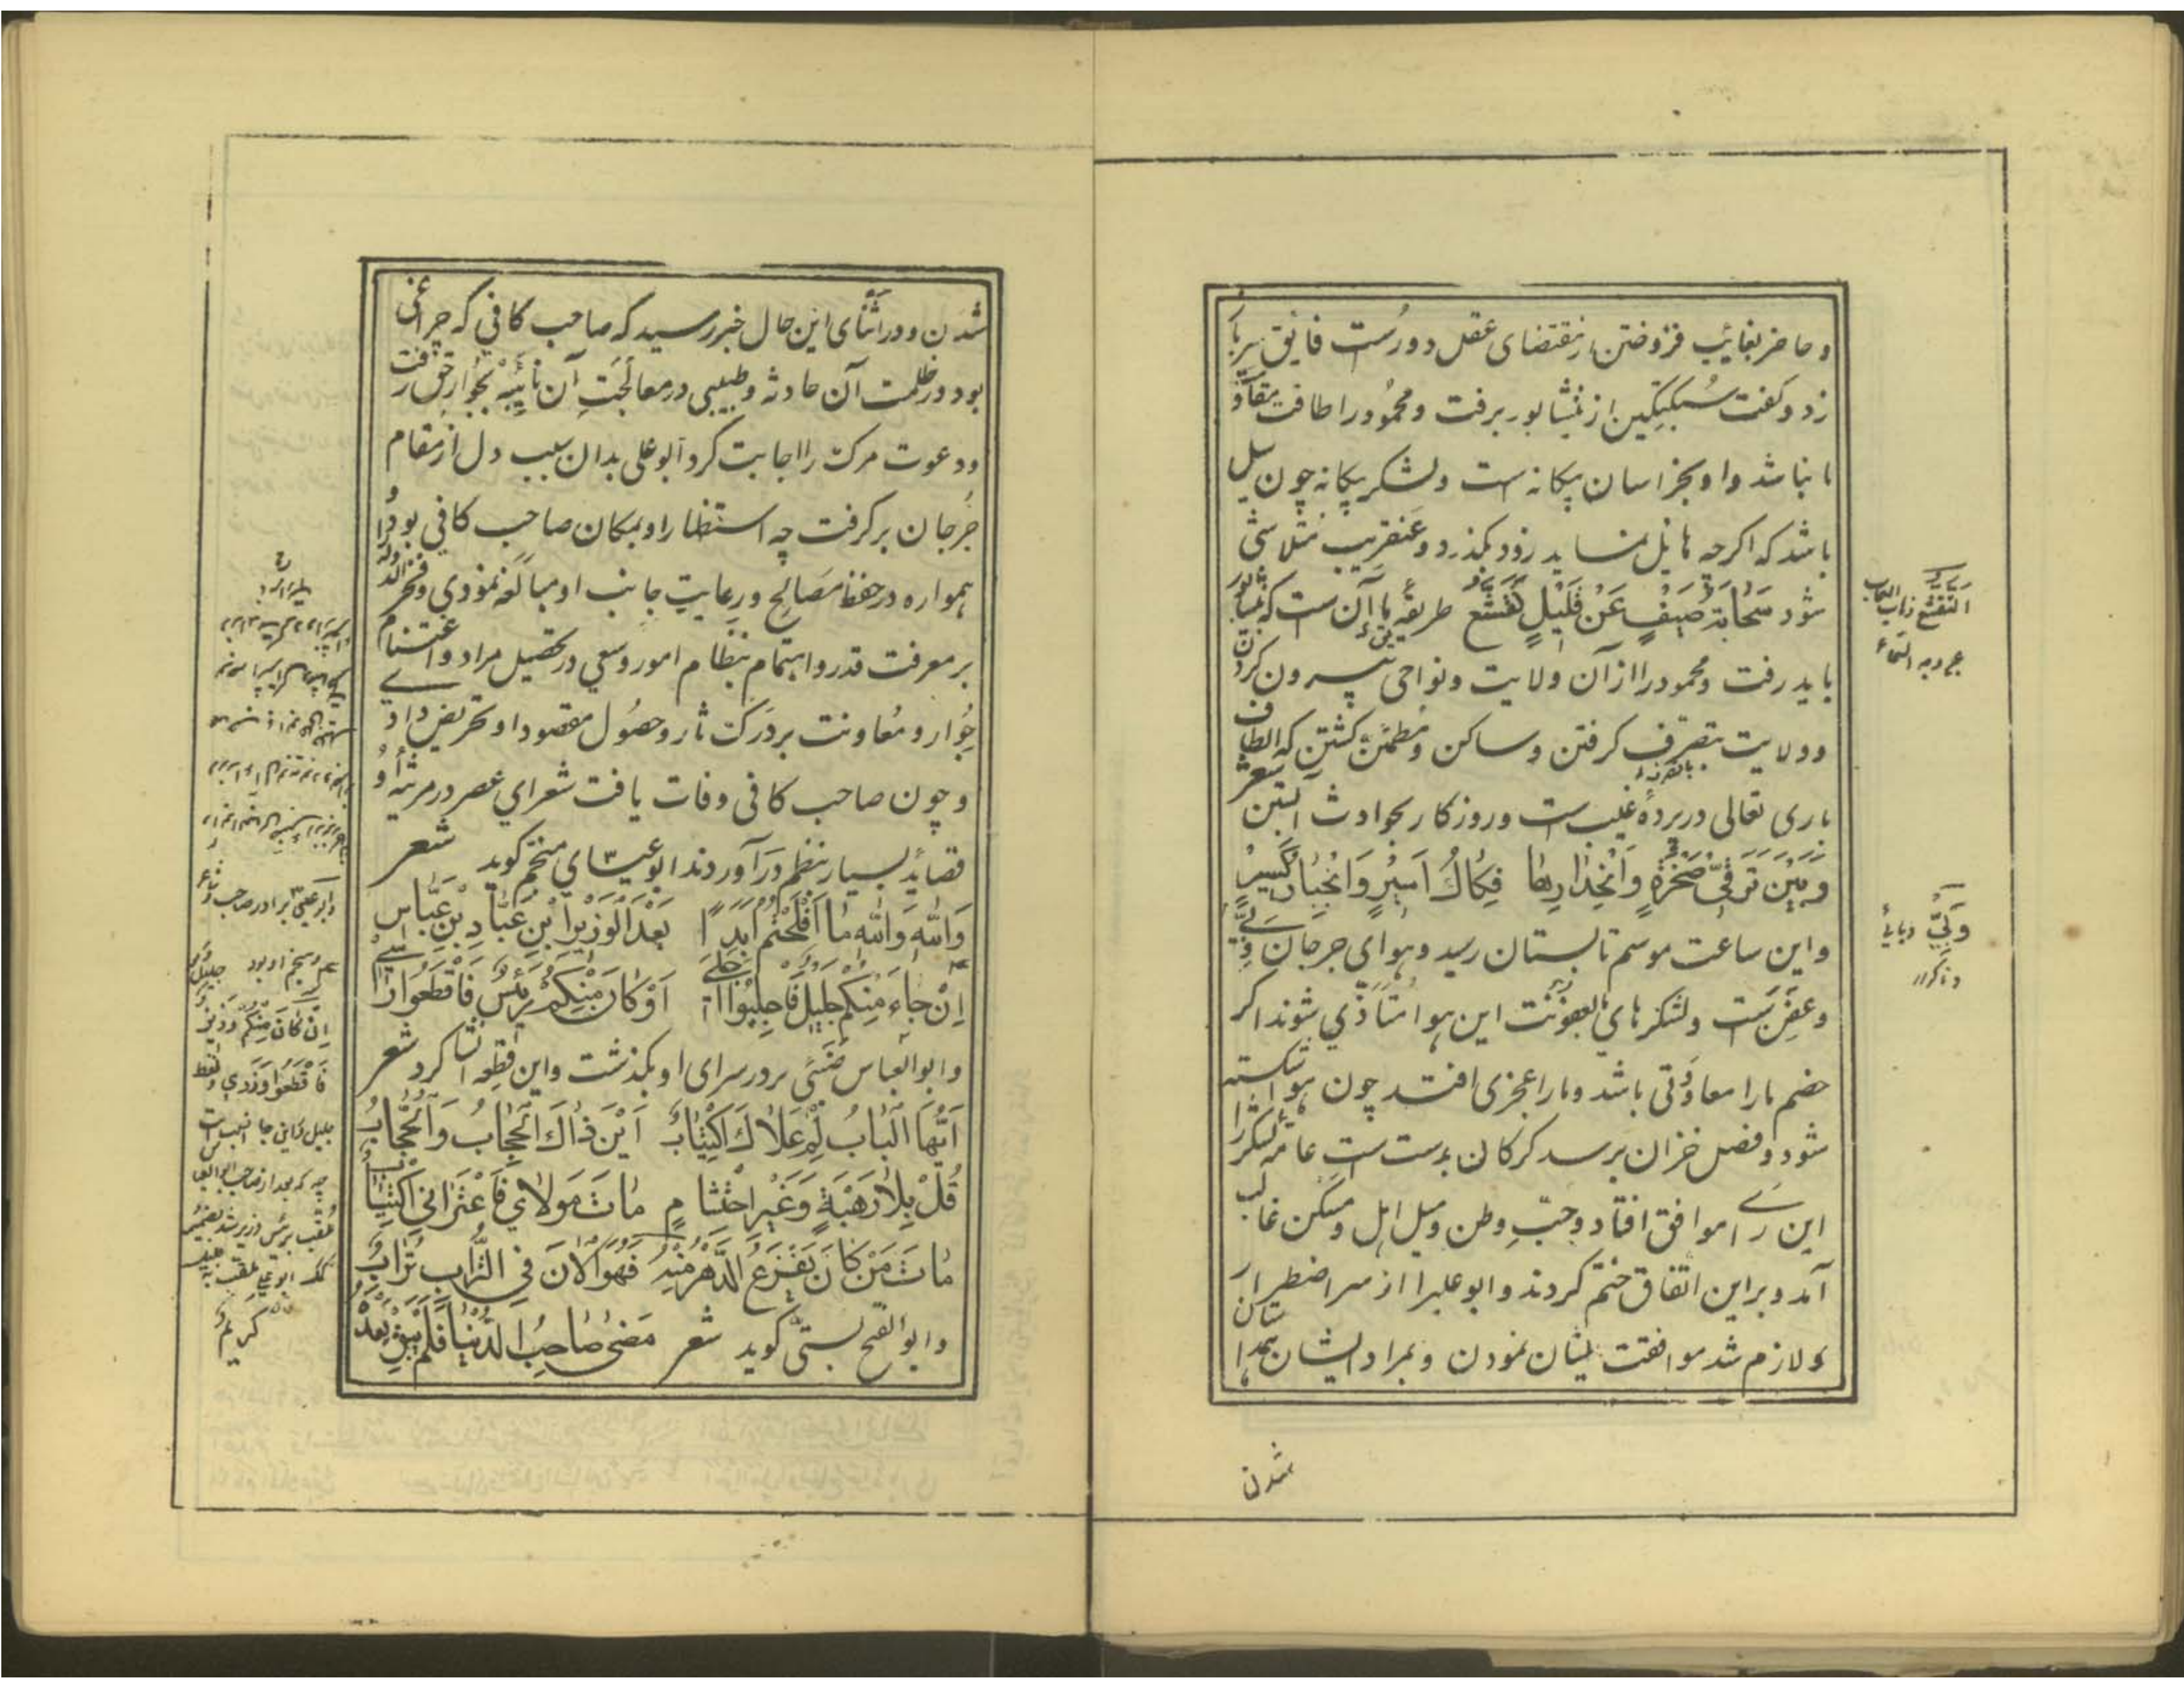 و حاضر بغایب فروختن از مقتضای عقل دورست فایق سر باز
زد و گفت سبکتکین از نیشابور برفت و محمود را طاقت مقاومت
ما نباشد و او بخراسان بیکانه است و لشکر بیکانه چون سیل
باشد که اکرچه هایل نماید زود بکذرد و عنقریب متلاشی
شود سَحابَةُ صَیفٍ عَنْ قَلیلٍ تَقَشَّعُ طریقه ما آن ست که بنیشابور
باید رفت و محمود را از آن ولایت و نواحی بیرون کردن
و ولایت بتصرف کرفتن و ساکن و مطمئن کشتن که الطاف
باری تعالی در پرده غیب ست و روزکار بحوادث آبستن شعر
وَبَیْنَ تَرَقّی صَخْرَةٍ وَانْحِدارِها فِکاكُ اَسیرٍ وَانْجِبارُ کَسیرٍ
و این ساعت موسم تابستان رسید و هوای جرجان وَبی
و عفن ست و لشکرهای ما بعفونت این هوا متاذی شوند اکر
خصم ما را معاودتی باشد و ما را عجزی افتد چون هوا شکسته
شود و فصل خزان برسد کرکان بدست ست عامه لشکر را
این رای موافق افتاد و حبّ وطن و میل اهل و مسکن غالب
آمد و بر این اتفاق ختم کردند و ابوعلی را از سر اضطرار
لازم شد موافقت ایشان نمودن و بمراد ایشان همداستان
شدن
التقشع ذهاب السحاب
عن وجه السماء
وَبیّ وبایی
شدن و در اثنای این حال خبر رسید که صاحب کافی که چراغی
بود در ظلمت آن حادثه و طبیبی در معالجت آن نائبه بجوار حق رفت
و دعوت مرک را اجابت کرد ابوعلی بدان سبب دل از مقام
جرجان برکرفت چه استظهار او بمکان صاحب کافی بود و او
همواره در حفظ مصالح و رعایت جانب او مبالغه نمودی و فخر الدوله را
بر معرفت قدر و اهتمام بنظام امور و سعی در تحصیل مراد و اغتنام
جوار و معاونت بر درک ثار و حصول مقصود او تحریض دادی
و چون صاحب کافی وفات یافت شعرای عصر در مرثیه او
قصاید بسیار بنظم درآوردند ابوعیسای منجم کوید شعر
وَاللّهِ وَاللّهِ ما اَفْلَحْتُمُ اَبَدًا بَعْدَ الْوَزیرِ ابْنِ عَبّادِ بْنِ عَبّاسِ
اِنْ جاءَ مِنْکُمْ جَلیلٌ فَاجْلِبُوا اَجَلی اَوْ کانَ مِنْکُمْ رَئیسٌ فَاقْطَعُوا راسی
و ابو العباس ضبّی بر در سرای او بکذشت و این قطعه انشا کرد شعر
اَیُّهَا الْبابُ لِمْ عَلاكَ اکْتِئابٌ اَیْنَ ذاكَ الْحِجابُ وَالْحُجّابُ
قُلْ بِلا رَهْبَةٍ وَغَیْرِ احْتِشامٍ ماتَ مَوْلایَ فَاعْتَرانی اکْتِئابٌ
ماتَ مَنْ کانَ یَفْزَعُ الدَّهْرُ مِنْهُ فَهُوَ الْآنَ فِی التُّرابِ تُرابٌ
و ابو الفتح بستی کوید شعر مَضی صاحِبُ الدُّنْیا فَلَمْ یَبْقَ بَعْدَهُ
اِنْ کانَ مِنْکُمْ وزیر
فَاقْطَعُوا وَزَری و لفظ
جلیل در این جا انسب است
چه که بعد از صاحب ابو العباس
ملقب برئیس وزیر شد بضمیمه
ابو علی ملقب به جلیل